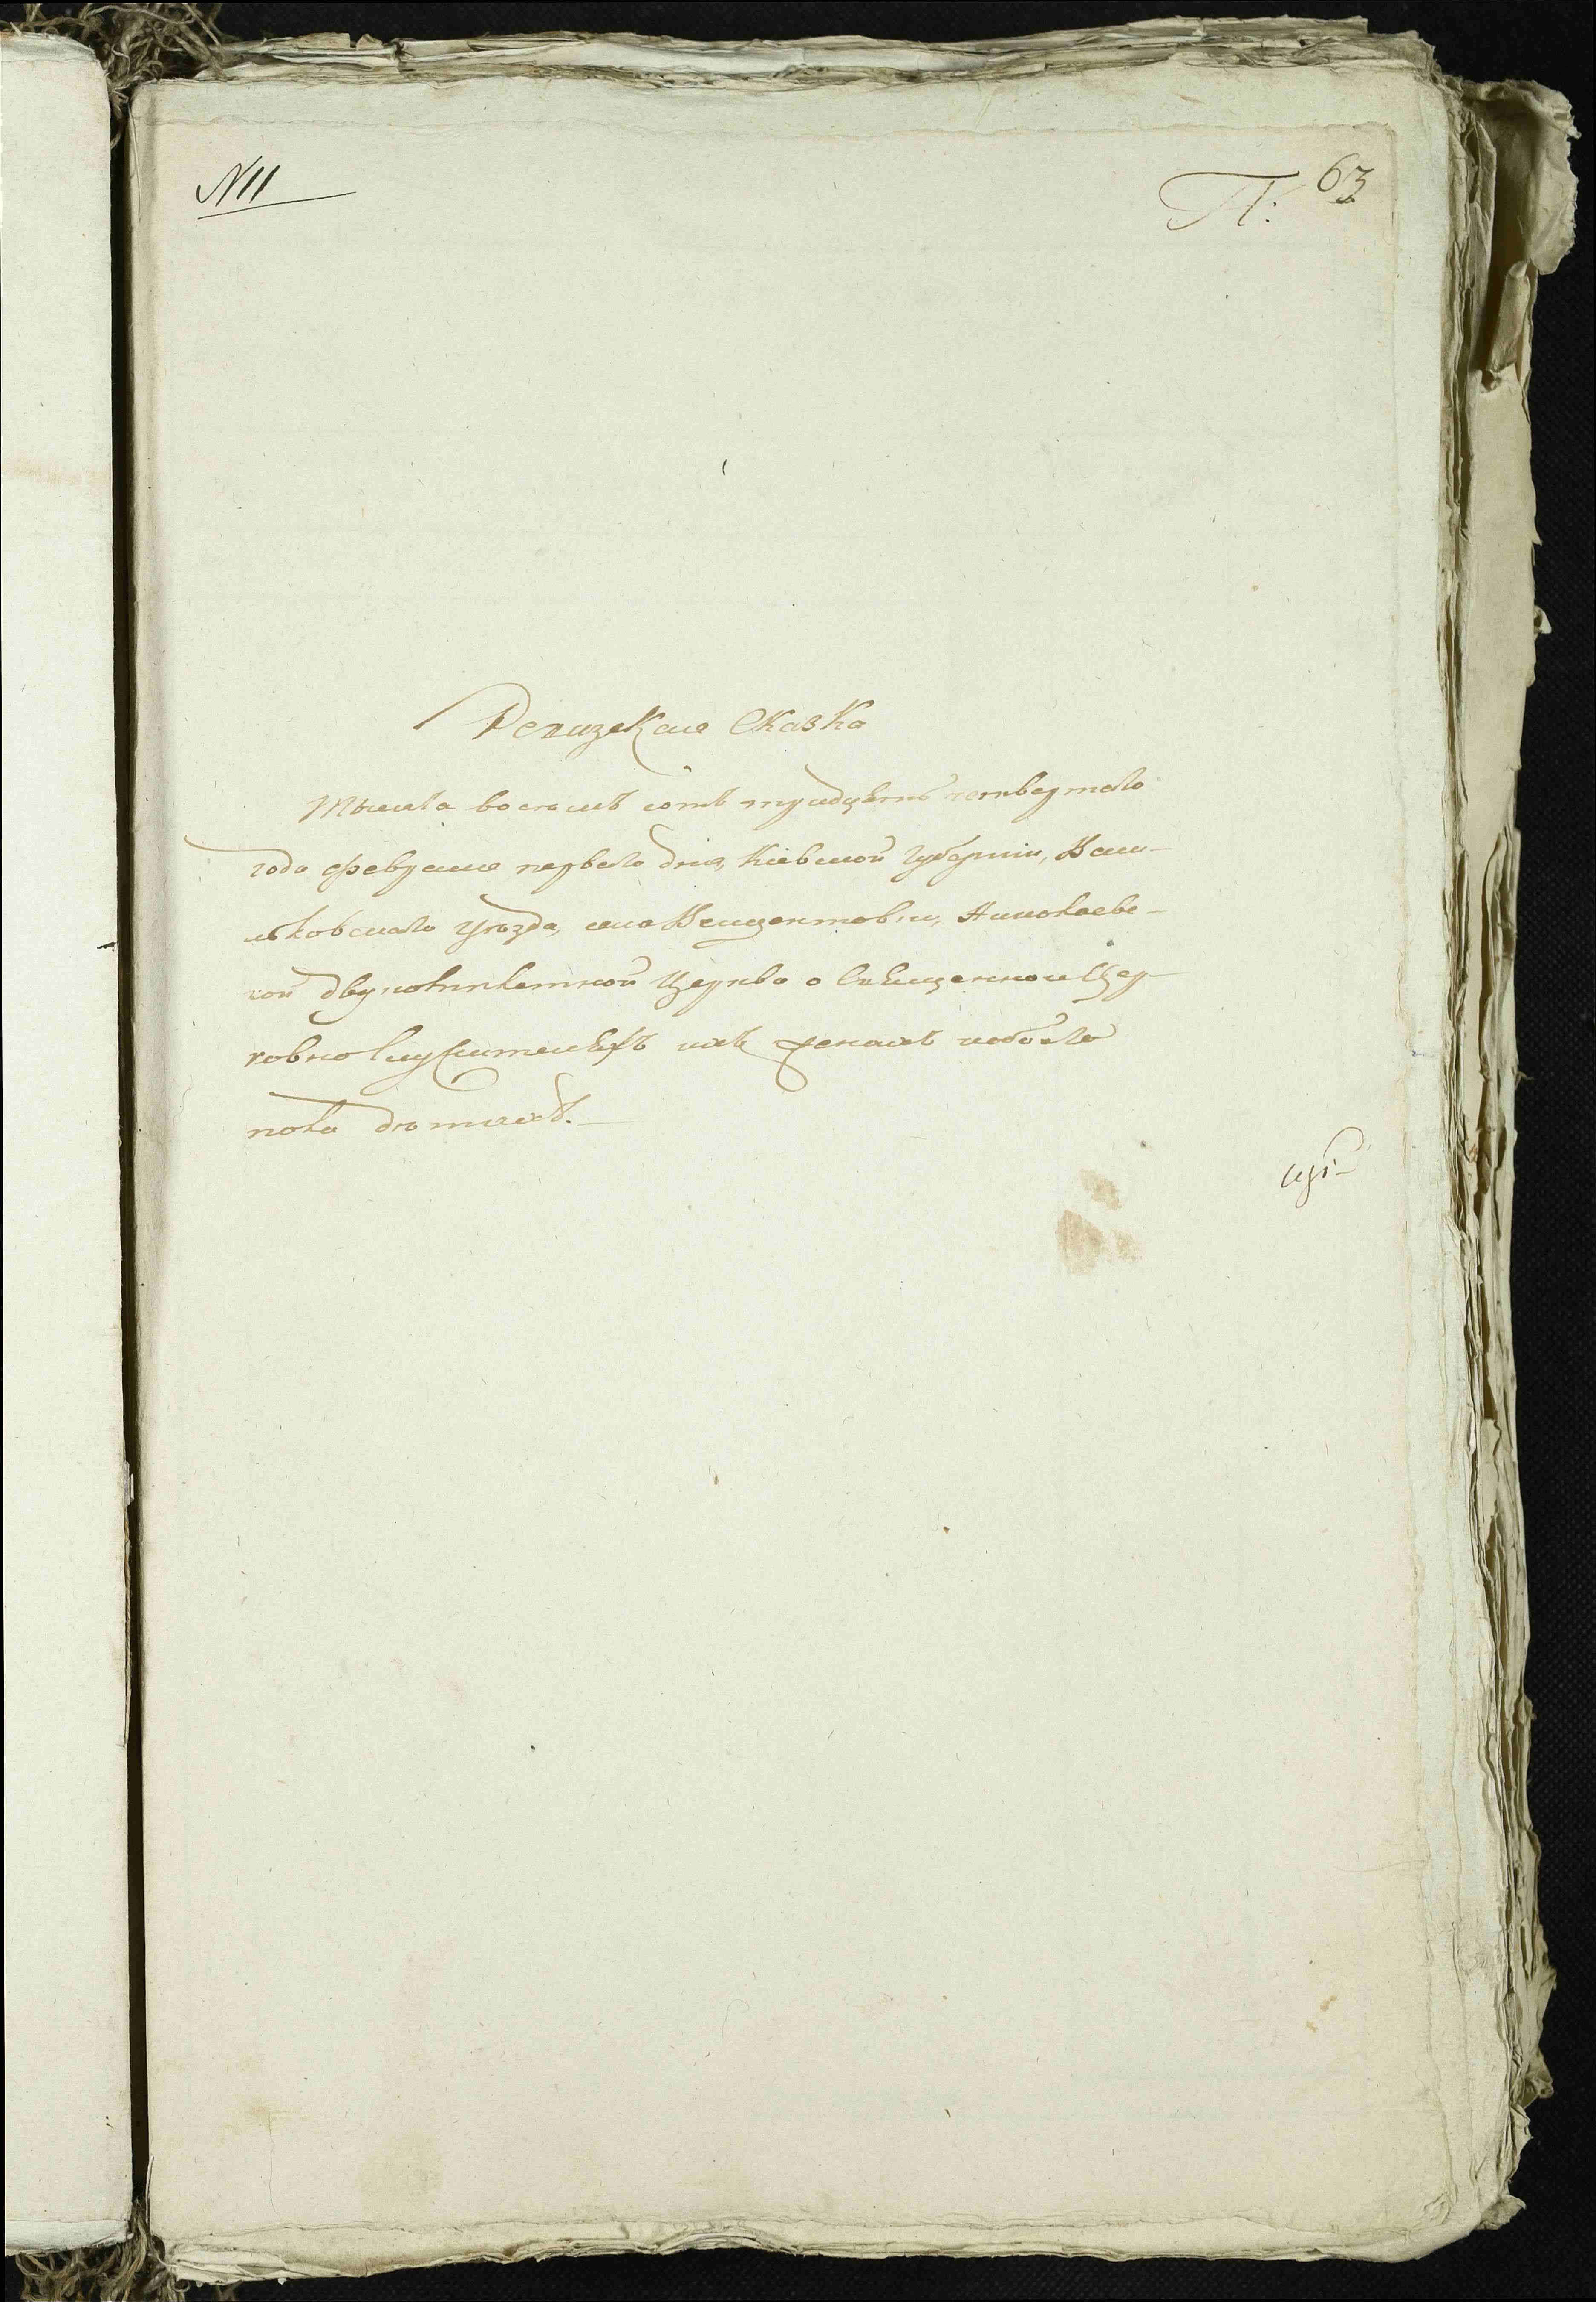 №11
П. 63
Ревизская Сказка
Тысяча восемь сотъ тридцать четвертаго
года февраля перваго дня, Кіевской губерніи, Васи-
льковскаго уѣзда, села Винцентовки, Николаевс-
кой двуполтиклетной Церкви о Священно и Цер-
ковно Служителяхъ ихъ женахъ и обоего
пола дѣтяхъ.